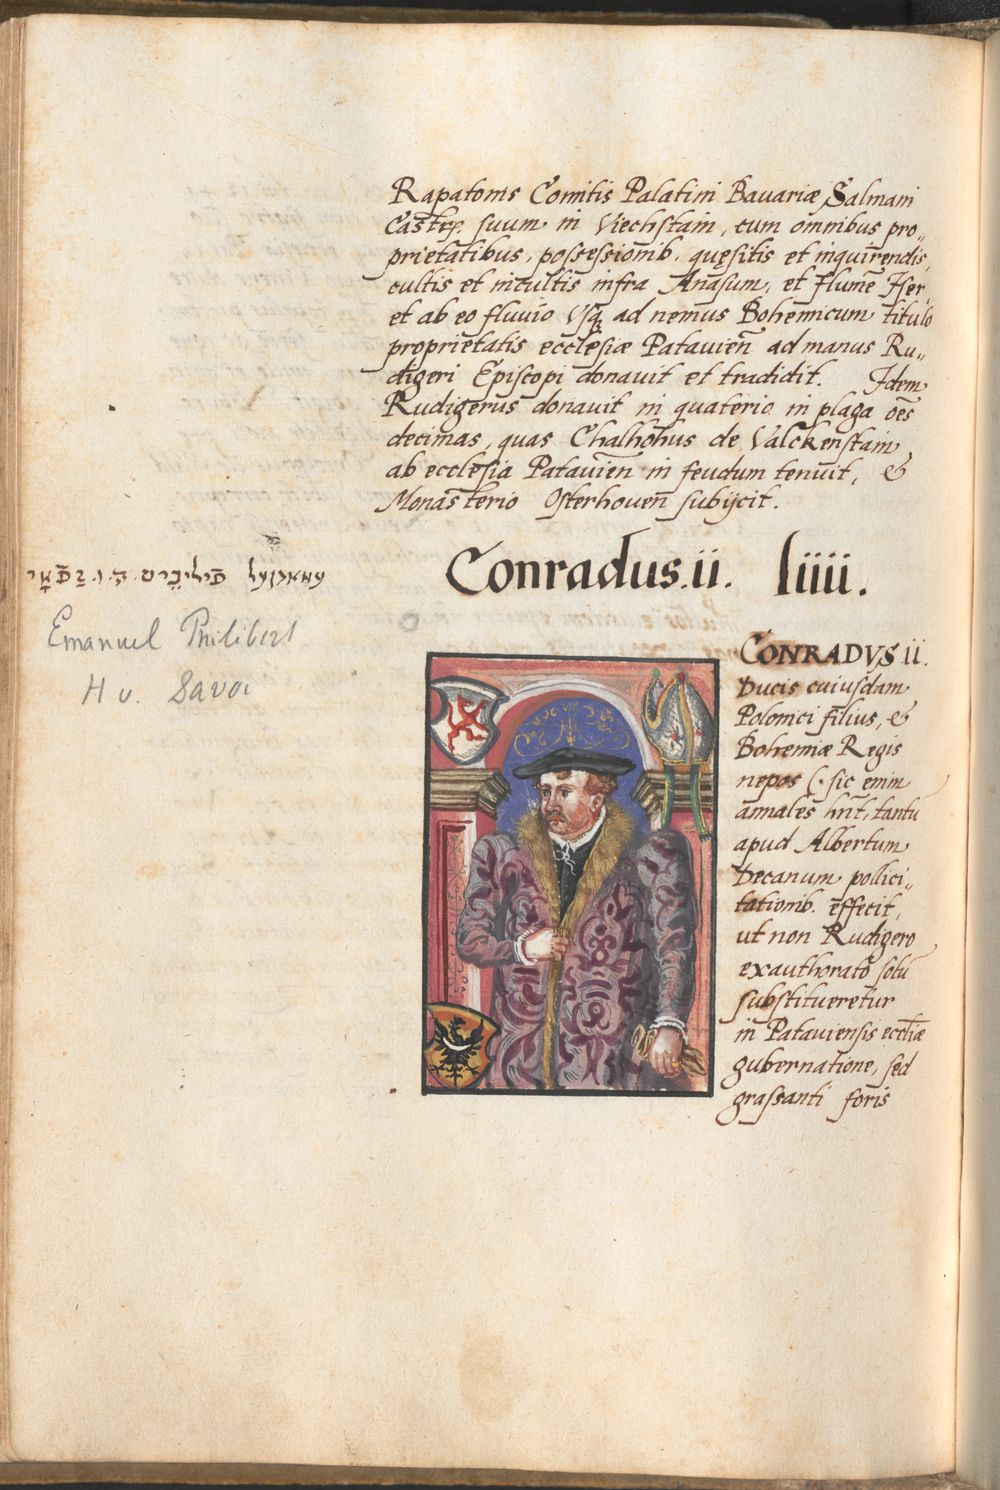 Rapatonis Comitis Palatini Bauariæ Salmani
suum in Viechstain, cum omnibus pro„
prietatibus, possessionib. quęsitis et inquirendis,
cultis et incultis infra Anasum, et flumē Iser,
et ab eo fluuio Vsq; ad nemus Bohemicum titulo
proprietatis ecclesiæ Patauien̄ ad manus Ru„
digeri Episcopi donauit et tradidit. Idem
Rudigerus donauit in quaterio in plaga oēs
decimas, quas Chalhohus de Valckenstain
ab ecclesia Patauien̄ in feudum tenuit, &
Monasterio Osterhouen̄ subijcit.
Conradus.ii. liiii.
Emanuel Philibert
H v. Savoi
CONRADVS ii.
Ducis cuiusdam
Polonici filius, &
Bohemiæ Regis
nepos (: sic enim
annales hn̄t, tantū
apud Albertum
Decanum pollici„
tationib. effecit,
ut non Rudigero
exauthorato solū
substitueretur
in Patauiensis eccl̄iæ
gubernatione, sed
grassanti foris